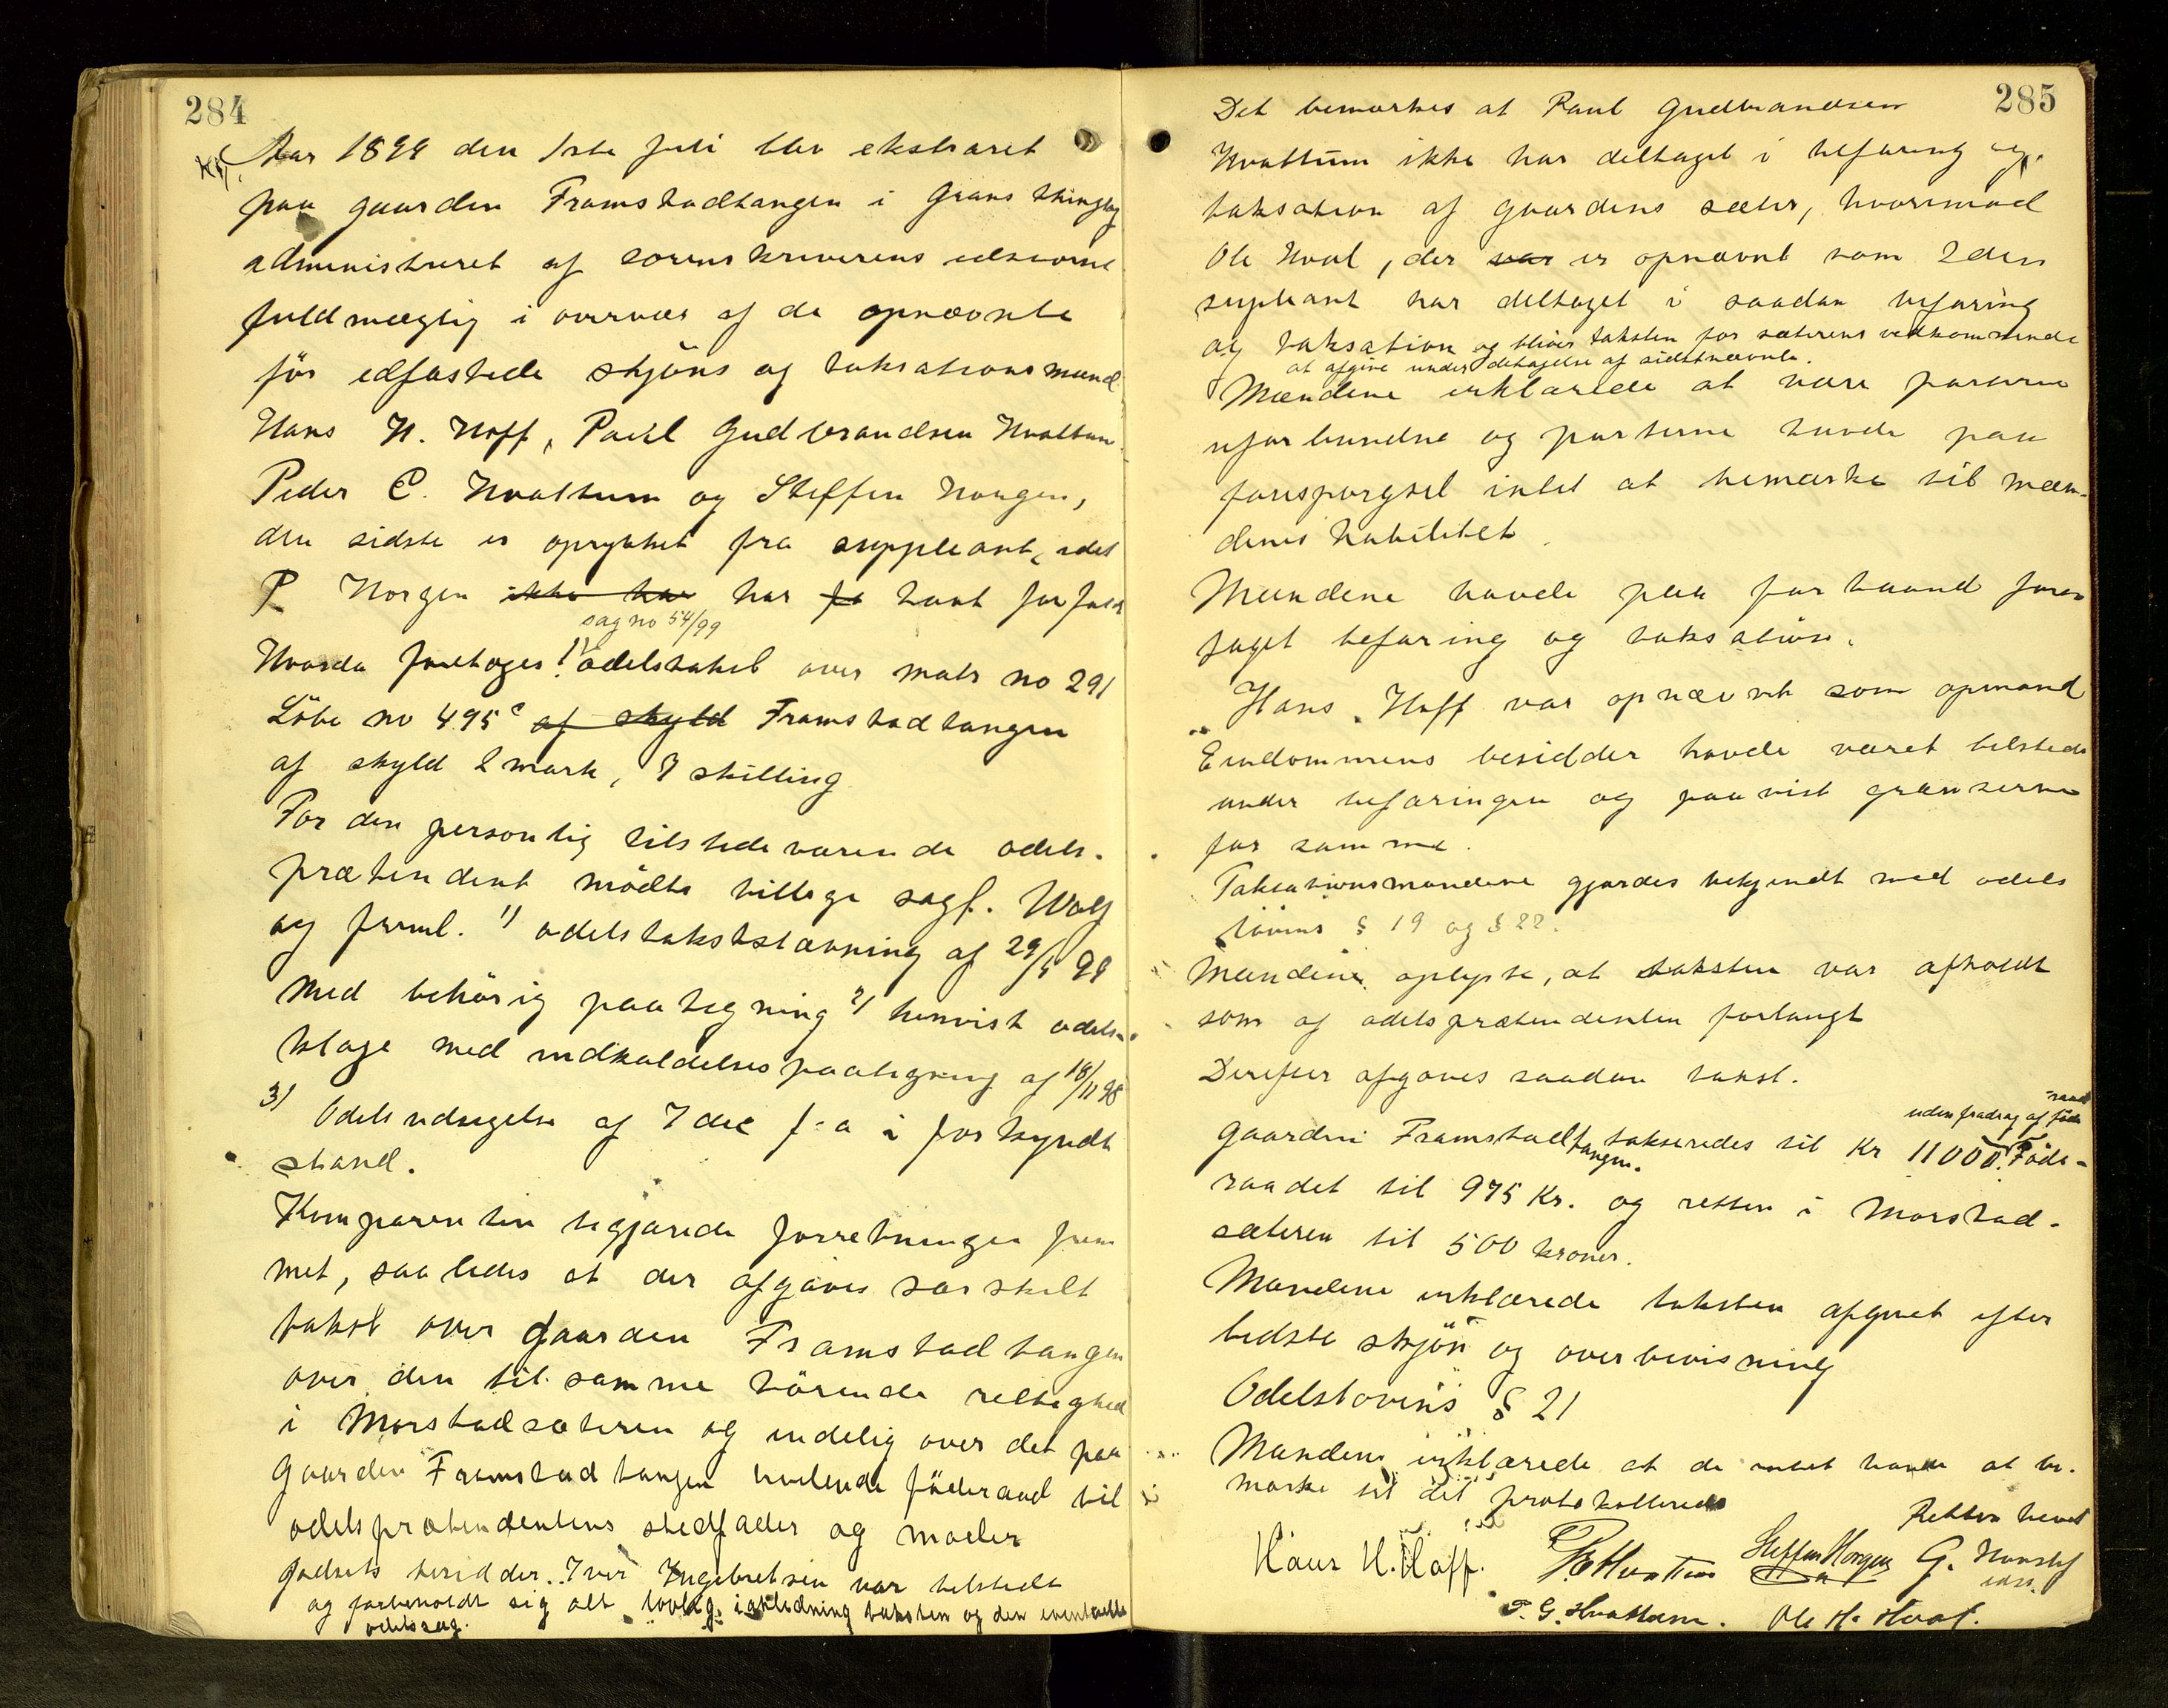 284
Aar 1899 den 1ste juli blev ekstraret
paa gaarden Framstadtangen i Grans thinglag
administreret af sorenskriverens edsvorne
fuldmægtig i overvær af de opnævnte
før edfæstede skjøns og taksationsmænd
Hans H. Hoff, Paul Gudbrandsen Hvattum
Peder E. Hvattum og Steffen Horgen,
den sidste er oprykket fra suppleant, idet
P Horgen ikke har har fo havt forfald
sag no 54/99
Hvorda foretoges 1) odelstakst over matr no 291
Løbe no 495c af skyld Framstadtangen
af skyld 2 mark, 7 skilling
For den personlig tilstedeværende odels-
prætendent mødte tillige sagf. Wolf
og freml. 1) odelstakststævning af 29/4 99
med behørig paategning 2) henvist odels-
klage med indkaldelsespaategning af 18/11 98
3) Odelsudsigelse af 7 dec f.a i forkyndt
stand.
Komparenten begjærede forretningen frem
met, saaledes at der afgaves særskilt
takst over Gaarden Framstadtangen
over den til samme hørende rettighed
i Morstadsæteren og endelig over det paa
Gaarden Framstadtangen hvilende føderaad til
odelsprætendentens stedfader og moder
Godsets besidder Iver Ingebretsen var tilstede
og forbeholdt sig alt lovlig i anledning taksten og den eventuelle
odelssag.
285
Det bemærkes at Paul Gudbrandsen
Hvattum ikke har deltaget i befaring og
taksation af gaardens sæter, hvorimod
Ole Hval, der var er opnævnt som 2den
supleant har deltaget i saadan befaring
og taksation og bliver taksten for sæterens vedkommende
at afgive under deltagelse af sidstnævnte.
Mændene erklærede at være parterne
uforbundne og parterne havde paa
forespørgsel intet at bemærke til mæn-
denes habilitet.
Mændene havde paa forhaand fore-
taget befaring og taksation.
Hans Hoff var opnævnt som opmand
Eiendommens besidder havde været tilstede
under befaringen og paavist grænserne
for samme.
Taksationsmændene gjordes bekjendt med odels
lovens § 19 og § 22.
Mændene oplyste, at taksten var afholdt
som af odelsprætendenten forlangt
Derefter afgaves saadan takst.
uden fradrag af føde
raad
Gaarden Framstadtangen takseredes til Kr 11000. Føde-
raadet til 975 Kr. og retten i Morstad-
sæteren til 500 kroner.
Mændene erklærede taksten afgivet efter
bedste skjøn og overbevisning
Odelslovens § 21
Mændene erklærede at de intet havde at be-
mærke til det protokollerede
Retten hævet
Hans H. Hoff. P. E. Hvattum Steffen Horgen G.
P. G. Hvattum. Ole H. Hval.